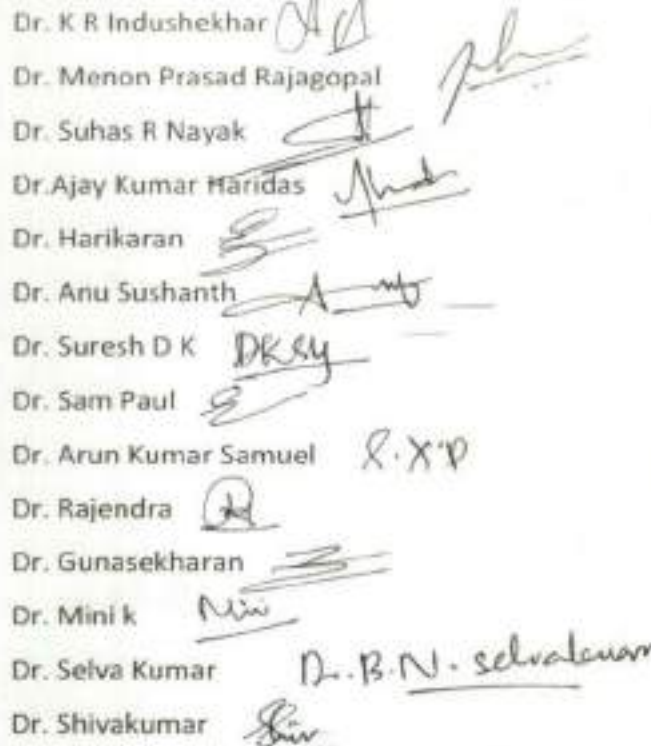 Dr. K R Indushekhar
Dr. Menon Prasad Rajagopal
Dr. Suhas R Nayak
Dr.Ajay Kumar Haridas
Dr. Harikaran
Dr. Anu Sushanth
Dr. Suresh D K
Dr. Sam Paul
Dr. Arun Kumar Samuel
Dr. Rajendra
Dr. Gunasekharan
Dr. Mini k Mini
Dr. Selva Kumar Dr. B.N. selvakumar
Dr. Shivakumar